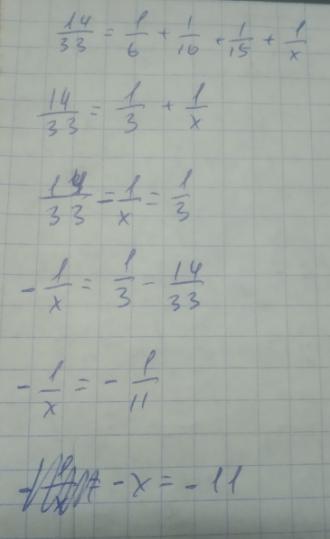 14/33 = 1/6 + 1/10 + 1/15 + 1/x
14/33 = 1/3 + 1/x
14/33 - 1/x = 1/3
- 1/x = 1/3 - 14/33
- 1/x = - 1/11
- x = - 11